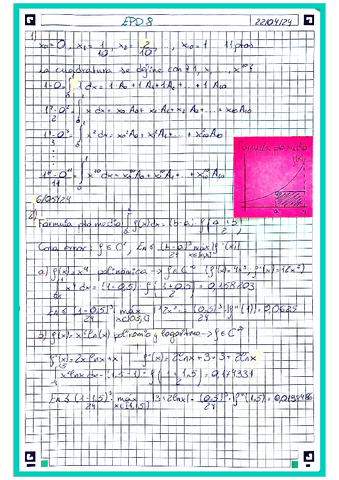 EPD 8 22/04/24
1)
x₀=0, x₁=1/10, x₂=2/10, , x₁₀=1 11 ptos
La cuadratura se define con {1, x, ..., x¹⁰}
1-0 = ∫ 1 dx = 1·A₀ + 1·A₁ + 1·A₂ + ... + 1·A₁₀
1²-0²/2 = ∫ x dx = x₀A₀ + x₁A₁ + x₂A₂ + ... + x₁₀A₁₀
1³-0³/3 = ∫ x²dx = x₀²A₀ + x₁²A₁ + ... + x₁₀²A₁₀
1¹¹-0¹¹/11 = ∫ x¹⁰dx = x₀¹⁰A₀ + x₁¹⁰A₁ + ... + x₁₀¹⁰A₁₀
fórmula pto medio
f(x)
a b
6/05/24
2)
Fórmula pto medio: ∫ f(x)dx = (b-a) · f(a+b/2)
Cota error: f∈C², En ≤ (b-a)³/24 max |f''(x)|
a) f(x)=x⁴ polinómica → f∈C∞ (f'=4x³, f''(x)=12x²)
∫ x⁴ dx = (1-0,5) · f(1+0,5/2) = 0,158203
En ≤ (1-0,5)³/24 · max x∈[0,5,1] |12x²| = (0,5)³/24 · |f''(1)| = 0,0625
b) f(x)=x²ln(x) polinomio y logaritmo → f∈C∞
f'(x)=2xlnx+x f''(x)=2lnx+3 = 3+2lnx
∫ x²lnx dx = (1,5-1) · f(1+1,5/2) = 0,174331
En ≤ (1-1,5)³/24 · max x∈[1,1,5] |3+2lnx| = (0,5)³/24 · f''(1,5) =